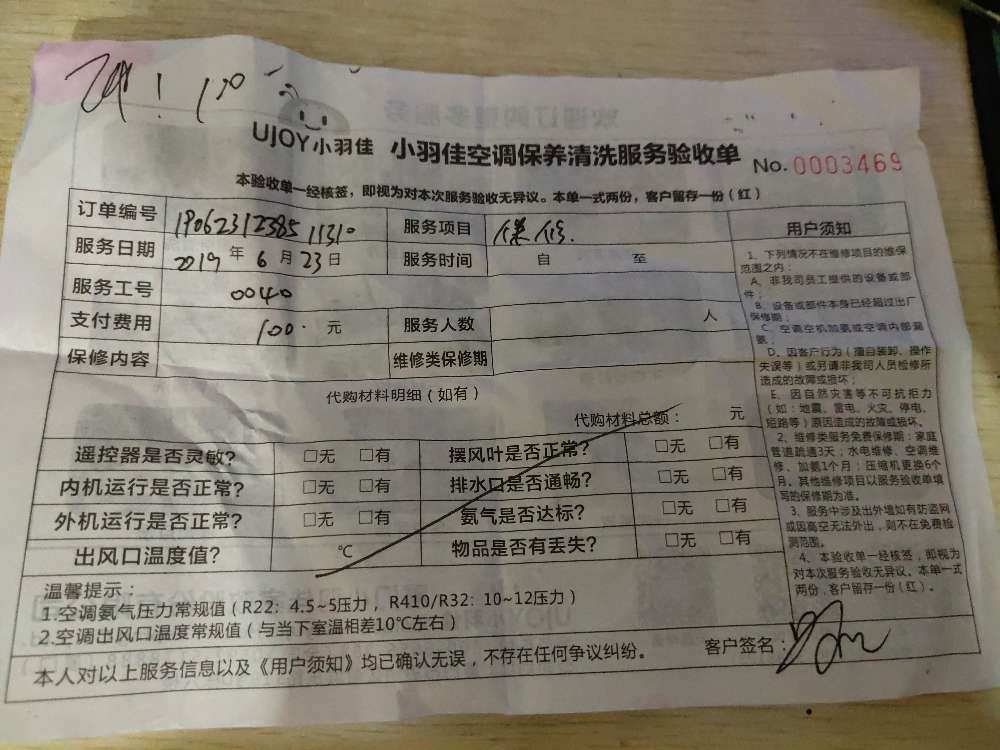 UJOY小羽佳 小羽佳空调保养清洗服务验收单 No.0003469
本验收单一经核签，即视为对本次服务验收无异议。本单一式两份，客户留存一份（红）
订单编号 服务项目
服务日期 2019年6月23日 服务时间 自 至
服务工号 0040
支付费用 100. 元 服务人数 人
保修内容 维修类保修期
代购材料明细（如有）
代购材料总额： 元
遥控器是否灵敏? □无 □有 摆风叶是否正常? □无 □有
内机运行是否正常? □无 □有 排水口是否通畅? □无 □有
外机运行是否正常? □无 □有 氨气是否达标? □无 □有
出风口温度值? ℃ 物品是否有丢失? □无 □有
温馨提示：
1.空调氨气压力常规值（R22：4.5~5压力，R410/R32：10~12压力）
2.空调出风口温度常规值（与当下室温相差10℃左右）
本人对以上服务信息以及《用户须知》均已确认无误，不存在任何争议纠纷。
客户签名：
用户须知
1、下列情况不在维修项目的维保
范围之内：
A、非我司员工提供的设备或部
件；
B、设备或部件本身已经超过出厂
保修期；
C、空调空机加氨或空调内部漏
氨；
D、因客户行为（擅自装卸、操作
失误等）或另请非我司人员检修所
造成的故障或损坏；
E、因自然灾害等不可抗拒力
（如：地震、雷电、火灾、停电、
短路等）原因造成的故障或损坏。
2、维修类服务免费保修期：家庭
管道疏通3天；水电维修、空调维
修、加氨1个月；压缩机更换6个
月。其他维修项目以服务验收单填
写的保修期为准。
3、服务中涉及出外墙如有防盗网
或因高空无法外出，则不在免费检
测范围。
4、本验收单一经核签，即视为
对本次服务验收无异议。本单一式
两份，客户留存一份（红）。